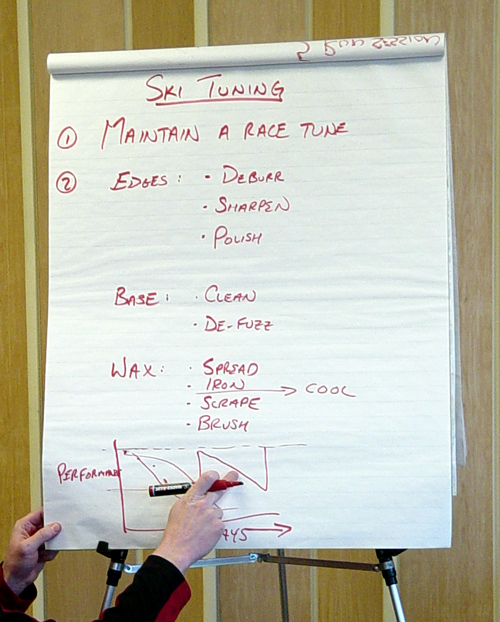 SKI TUNING
① MAINTAIN A RACE TUNE
② EDGES: · DEBURR
· SHARPEN
· POLISH
BASE: · CLEAN
· DE-FUZZ
WAX: · SPREAD
· IRON → COOL
· SCRAPE
· BRUSH